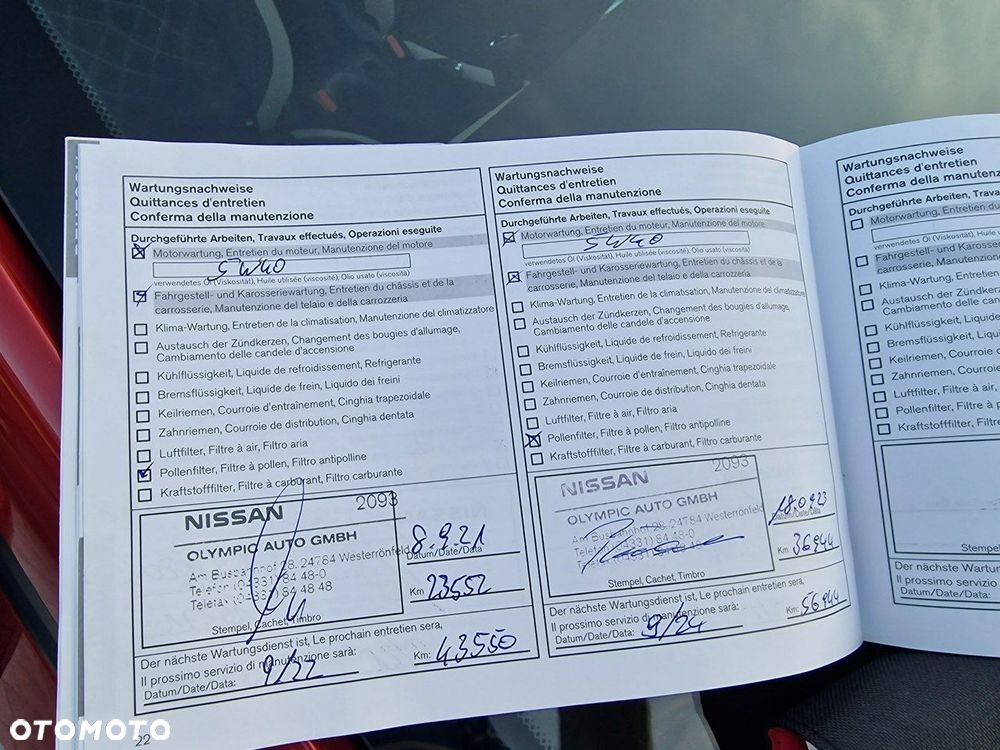 Wartungsnachweise
Quittances d'entretien
Conferma della manutenzione
Durchgeführte Arbeiten, Travaux effectués, Operazioni eseguite
Motorwartung, Entretien du moteur, Manutenzione del motore
5W40
verwendetes Öl (Viskosität), Huile utilisée (viscosité), Olio usato (viscosità)
Fahrgestell- und Karosseriewartung, Entretien du châssis et de la
carrosserie, Manutenzione del telaio e della carrozzeria
Klima-Wartung, Entretien de la climatisation, Manutenzione del climatizzatore
Austausch der Zündkerzen, Changement des bougies d'allumage,
Cambiamento delle candele d'accensione
Kühlflüssigkeit, Liquide de refroidissement, Refrigerante
Bremsflüssigkeit, Liquide de frein, Liquido dei freini
Keilriemen, Courroie d'entraînement, Cinghia trapezoidale
Zahnriemen, Courroie de distribution, Cinghia dentata
Luftfilter, Filtre à air, Filtro aria
Pollenfilter, Filtre à pollen, Filtro antipolline
Kraftstofffilter, Filtre à carburant, Filtro carburante
NISSAN 2093
OLYMPIC AUTO GMBH
Am Busbahnhof 28, 24784 Westerrönfeld
Telefon (04331) 84 48-0
Telefax (04331) 84 48 48
Stempel, Cachet, Timbro
8.9.21
Datum/Date/Data
Km 23552
Der nächste Wartungsdienst ist, Le prochain entretien sera,
Il prossimo servizio di manutenzione sarà:
Datum/Date/Data: 9/22 Km: 43550
22
Wartungsnachweise
Quittances d'entretien
Conferma della manutenzione
Durchgeführte Arbeiten, Travaux effectués, Operazioni eseguite
Motorwartung, Entretien du moteur, Manutenzione del motore
5W40
verwendetes Öl (Viskosität), Huile utilisée (viscosité), Olio usato (viscosità)
Fahrgestell- und Karosseriewartung, Entretien du châssis et de la
carrosserie, Manutenzione del telaio e della carrozzeria
Klima-Wartung, Entretien de la climatisation, Manutenzione del climatizzatore
Austausch der Zündkerzen, Changement des bougies d'allumage,
Cambiamento delle candele d'accensione
Kühlflüssigkeit, Liquide de refroidissement, Refrigerante
Bremsflüssigkeit, Liquide de frein, Liquido dei freini
Keilriemen, Courroie d'entraînement, Cinghia trapezoidale
Zahnriemen, Courroie de distribution, Cinghia dentata
Luftfilter, Filtre à air, Filtro aria
Pollenfilter, Filtre à pollen, Filtro antipolline
Kraftstofffilter, Filtre à carburant, Filtro carburante
NISSAN 2093
OLYMPIC AUTO GMBH
Am Busbahnhof 28, 24784 Westerrönfeld
Telefon (04331) 84 48-0
Stempel, Cachet, Timbro
18.09.23
Datum/Date/Data
Km 36944
Der nächste Wartungsdienst ist, Le prochain entretien sera,
Il prossimo servizio di manutenzione sarà:
Datum/Date/Data: 9/24 Km: 56944
Wartungsnachweise
Quittances d'entretien
Conferma della manutenzione
Durchgeführte Arbeiten, Tra
Motorwartung, Entretien du
verwendetes Öl (Viskosität), Huile
Fahrgestell- und Karosserie
carrosserie, Manutenzione
Klima-Wartung, Entretien
Austausch der Zündkerzen
Cambiamento delle candele
Kühlflüssigkeit, Liquide
Bremsflüssigkeit, Liquide
Keilriemen, Courroie
Zahnriemen, Courroie
Luftfilter, Filtre à air,
Pollenfilter, Filtre à
Kraftstofffilter, Filtre
Stempel
Der nächste Wartung
Il prossimo servizio
Datum/Date/Data:
OTOMOTO